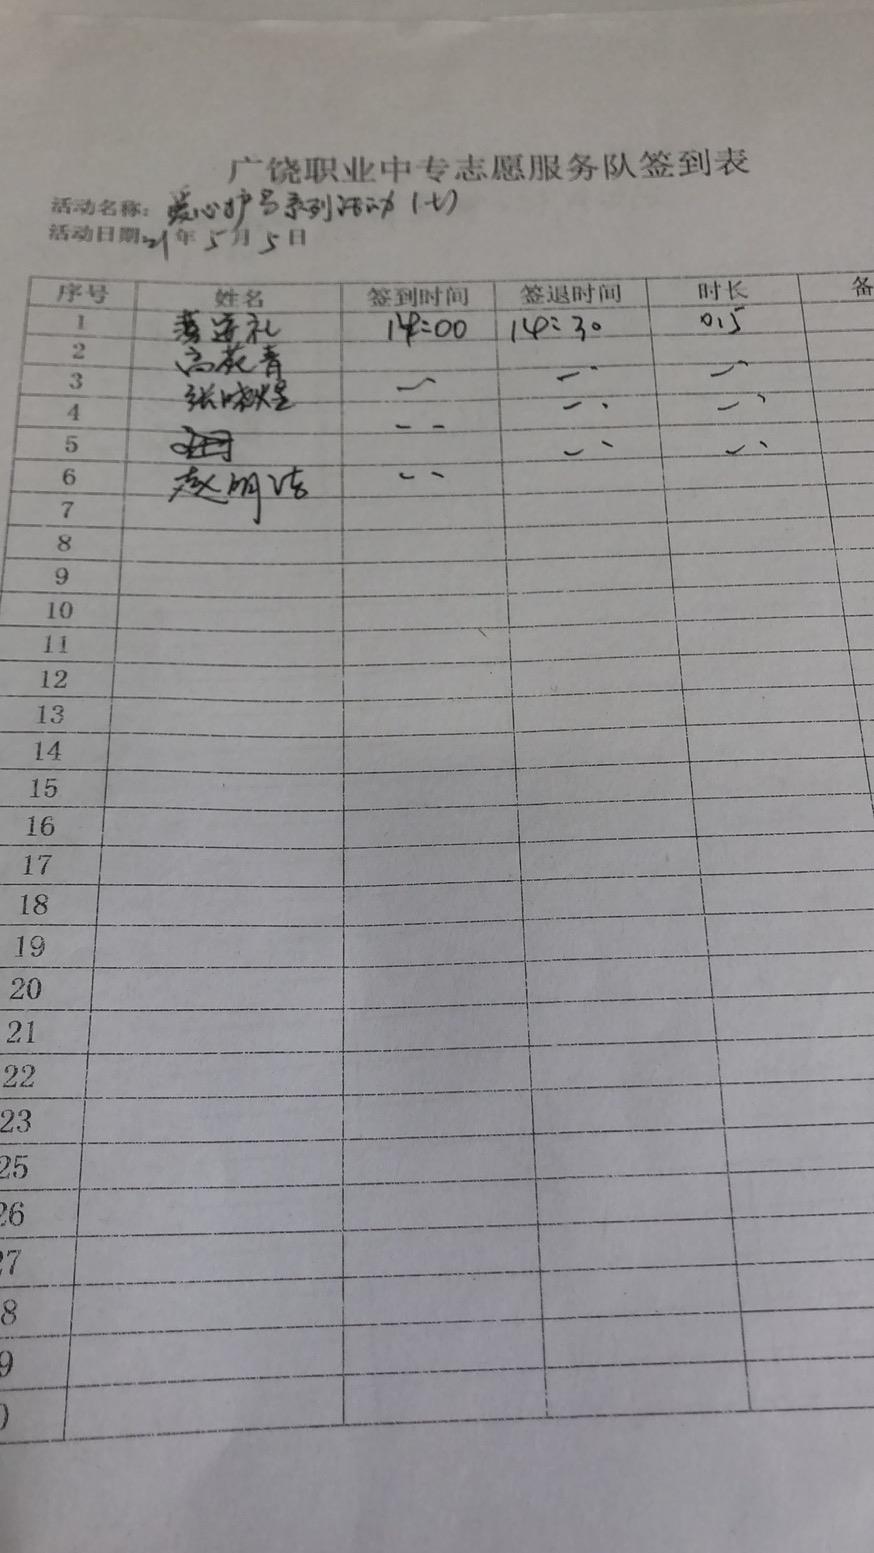 广饶职业中专志愿服务队签到表
活动名称：爱心护考系列活动（七）
活动日期21年5月5日
序号 姓名 签到时间 签退时间 时长 备
1 14:00 14:30 0.5
2 高
3 张晓煜
4
5
6 赵明洁
7
8
9
10
11
12
13
14
15
16
17
18
19
20
21
22
23
25
26
27
8
9